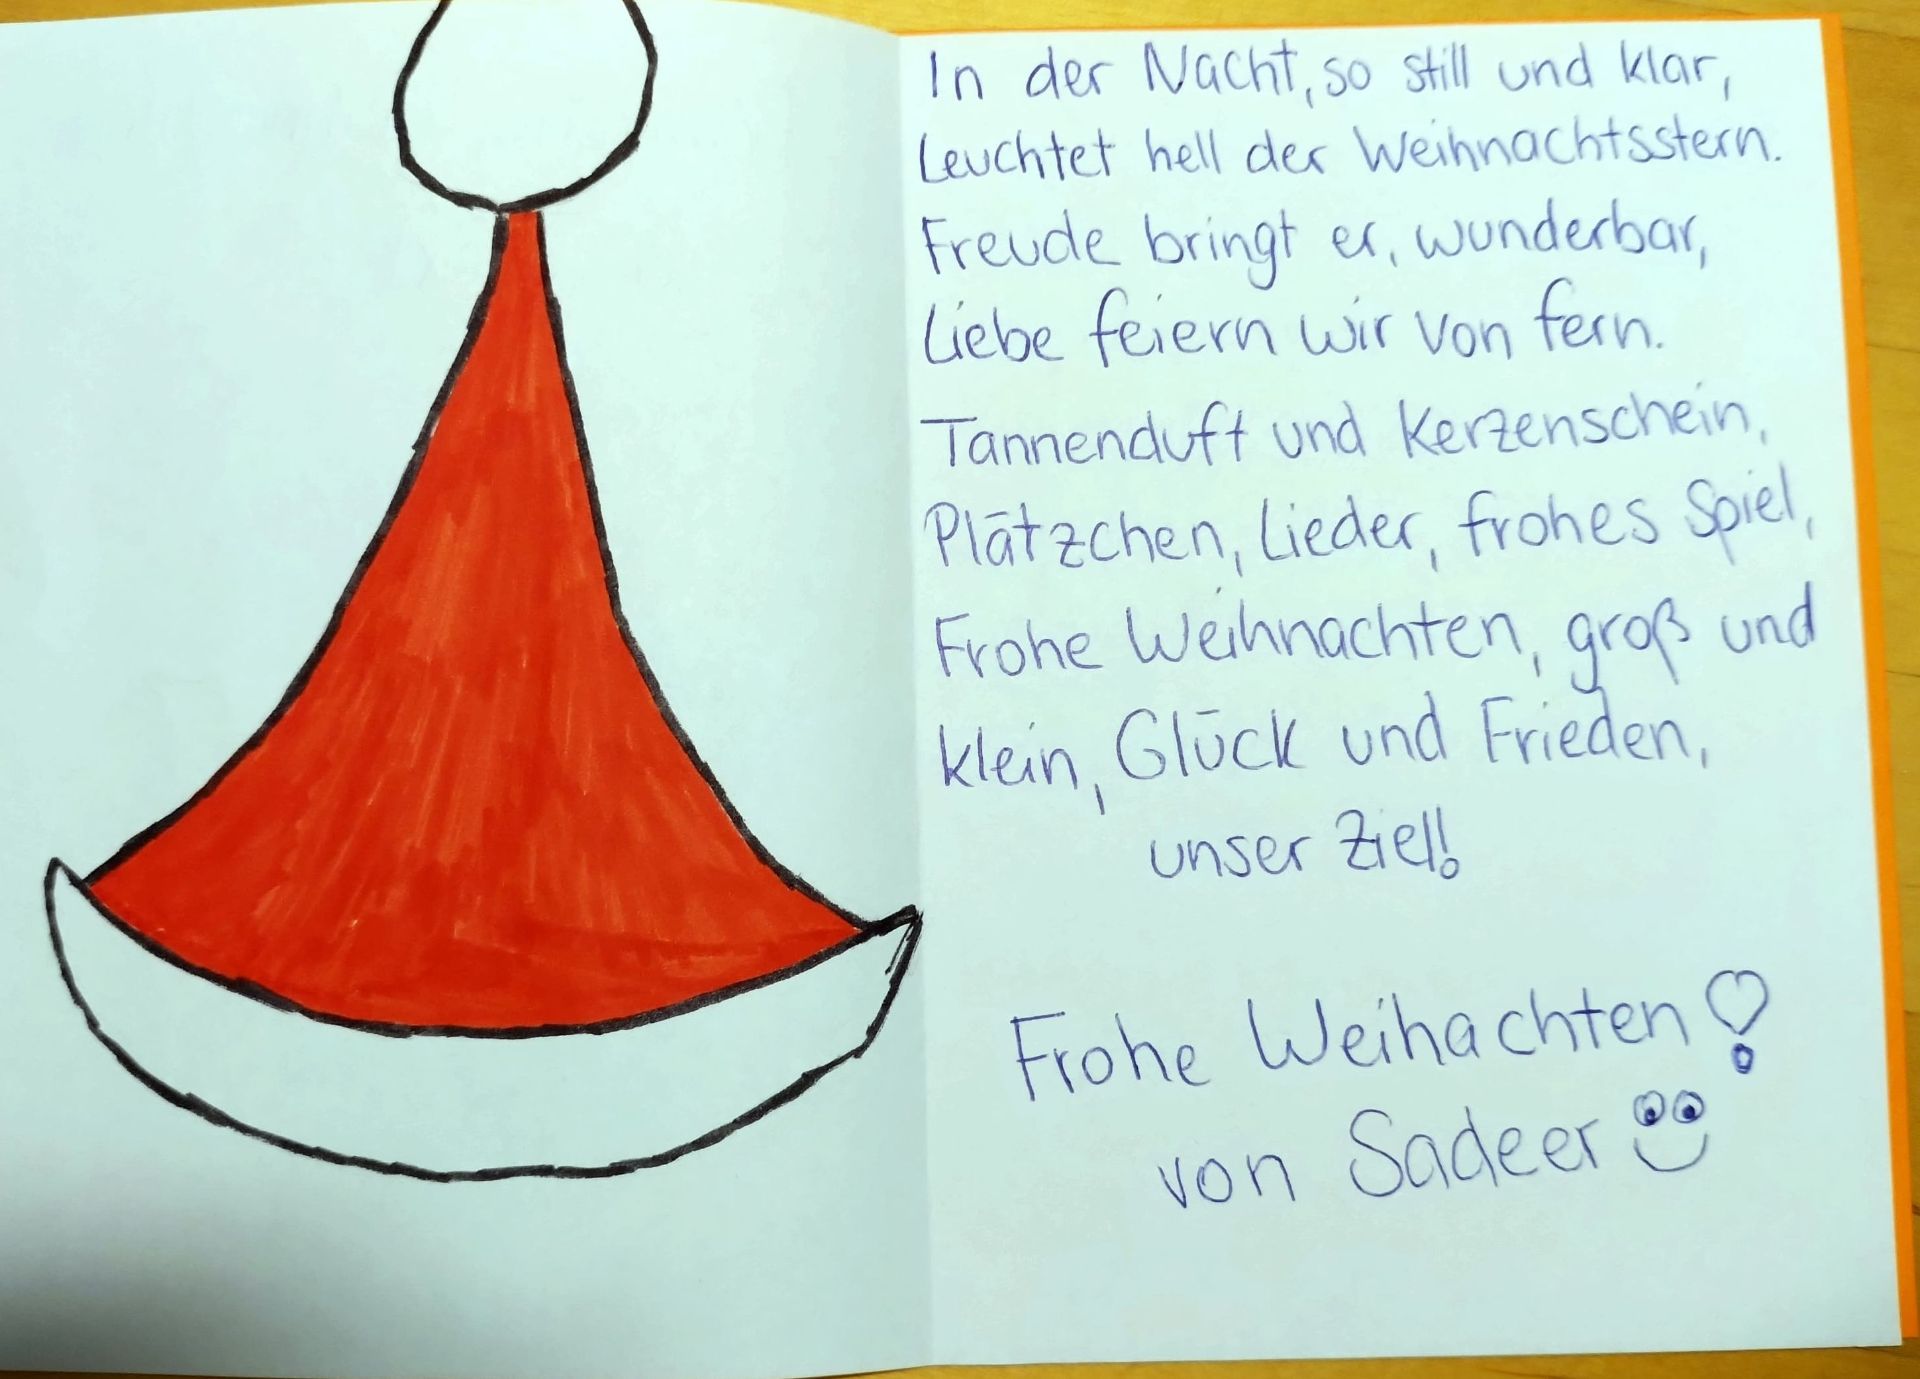 In der Nacht, so still und klar,
Leuchtet hell der Weihnachtsstern.
Freude bringt er, wunderbar,
Liebe feiern wir von fern.
Tannenduft und Kerzenschein,
Plätzchen, Lieder, frohes Spiel,
Frohe Weihnachten, groß und
klein, Glück und Frieden,
unser Ziel!
Frohe Weihachten!
von Sadeer